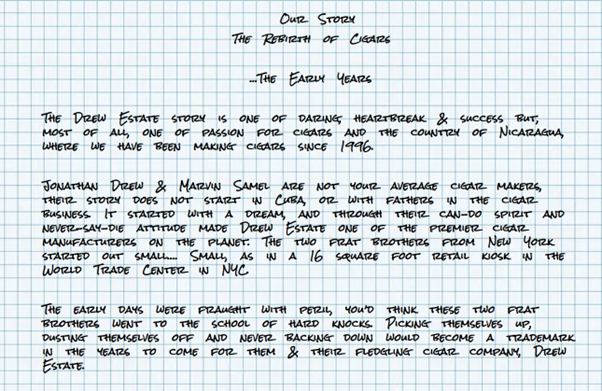 Our Story
The Rebirth of Cigars
...The Early Years
The Drew Estate story is one of daring, heartbreak & success but,
most of all, one of passion for cigars and the country of Nicaragua,
where we have been making cigars since 1996.
Jonathan Drew & Marvin Samel are not your average cigar makers,
their story does not start in Cuba, or with fathers in the cigar
business. It started with a dream, and through their can-do spirit and
never-say-die attitude made Drew Estate one of the premier cigar
manufacturers on the planet. The two frat brothers from New York
started out small... Small, as in a 16 square foot retail kiosk in the
World Trade Center in NYC
The early days were fraught with peril, you'd think these two frat
brothers went to the school of hard knocks. Picking themselves up,
dusting themselves off and never backing down would become a trademark
in the years to come for them & their fledgling cigar company, Drew
Estate.